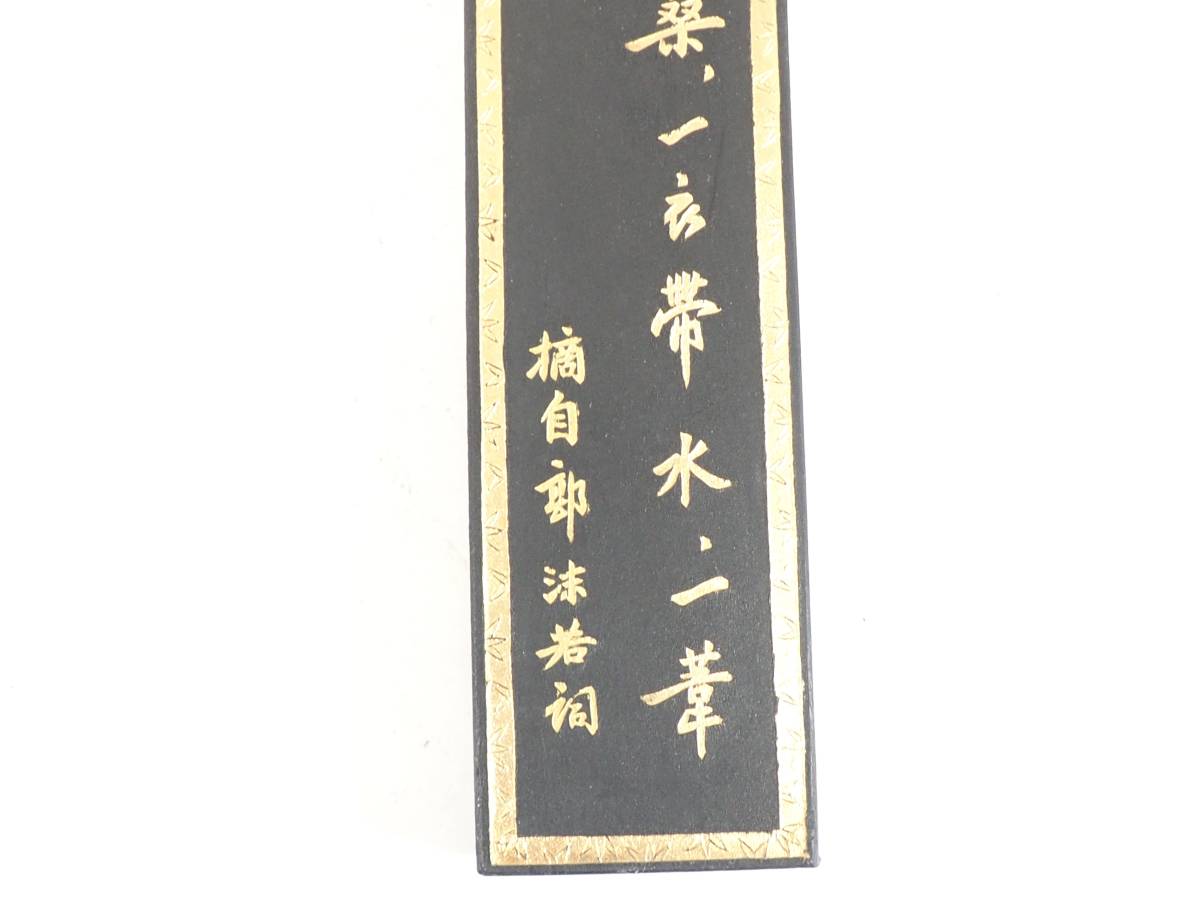 桑、一衣帶水、一葦
摘自郭沫若詞